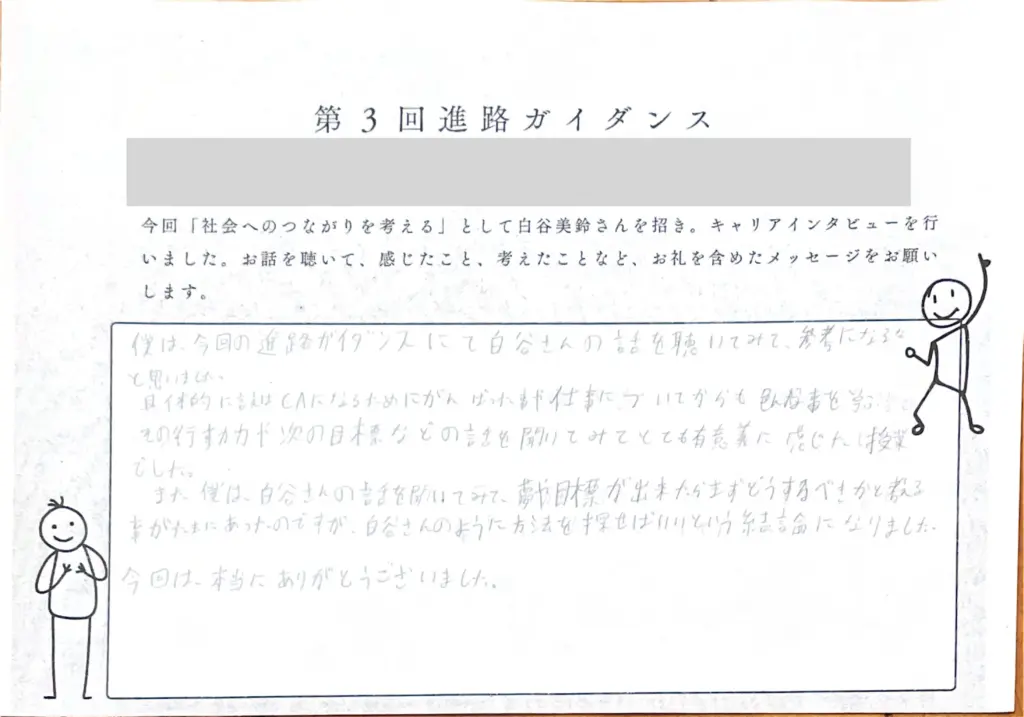 第3回進路ガイダンス
今回「社会へのつながりを考える」として白谷美鈴さんを招き。キャリアインタビューを行
いました。お話を聴いて、感じたこと、考えたことなど、お礼を含めたメッセージをお願い
します。
僕は、今回の進路ガイダンスにて白谷さんの話を聴いてみて、参考になるな
と思いました。
具体的に言えばCAになるためにがんばった事や仕事についてからも
その行動力や次の目標などの話を聞いてみてとても有意義に感じた授業
でした。
また僕は、白谷さんの話を聞いてみて、夢や目標が出来たらまずどうするべきかと考える
事がたまにあったのですが、白谷さんのように方法を探せばいいという結論になりました。
今回は、本当にありがとうございました。